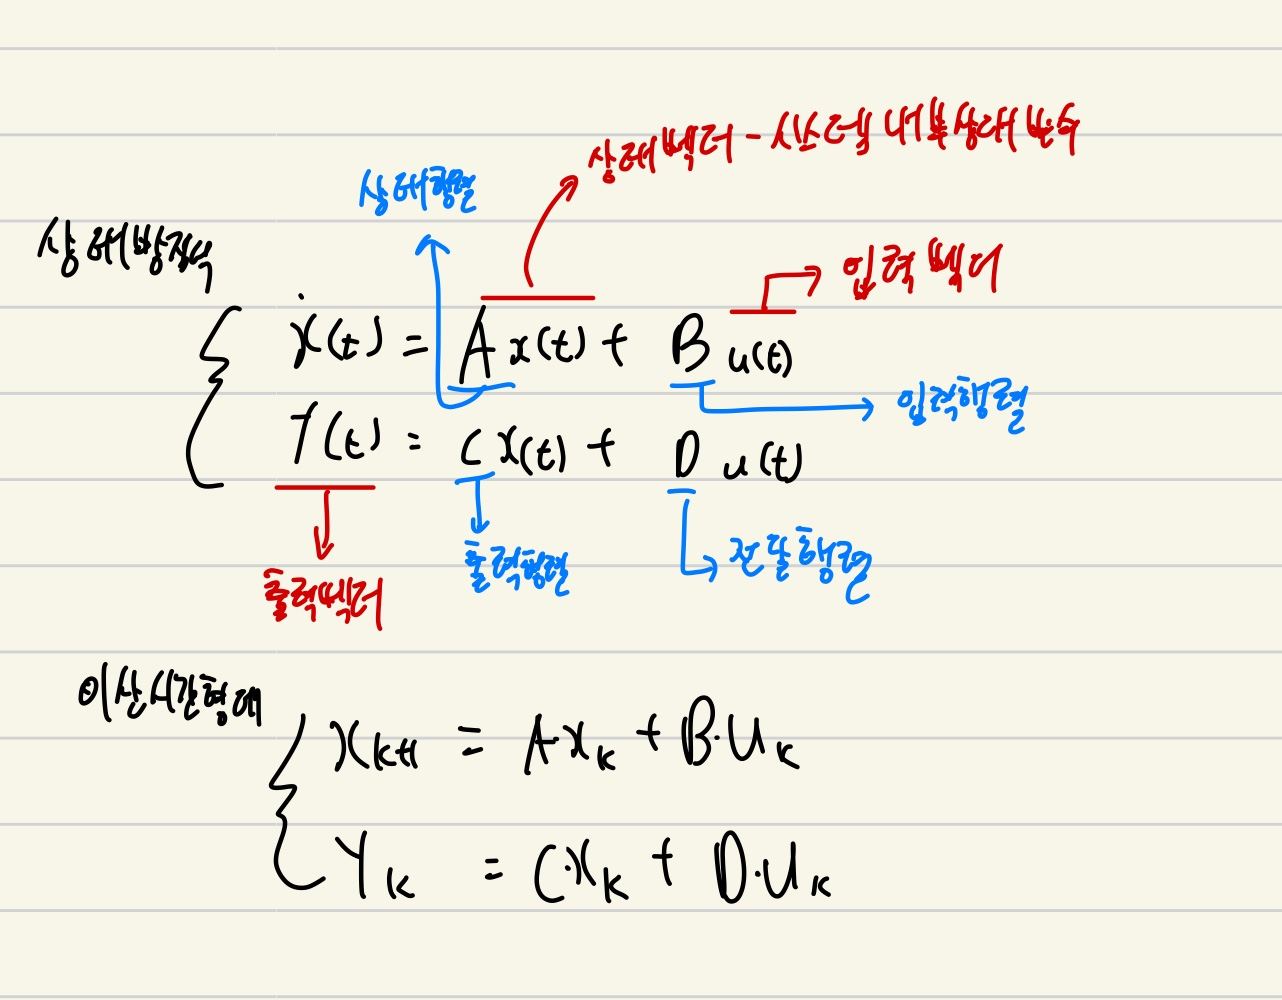 상태벡터 - 시스템 내부상태 변수
상태행렬
상태방정식
입력 벡터
ẋ(t) = A x(t) + B u(t)
입력행렬
Y(t) = C x(t) + D u(t)
전달행렬
출력행렬
출력벡터
이산시간형태
xₖ₊₁ = A·xₖ + B·uₖ
Yₖ = C·xₖ + D·uₖ